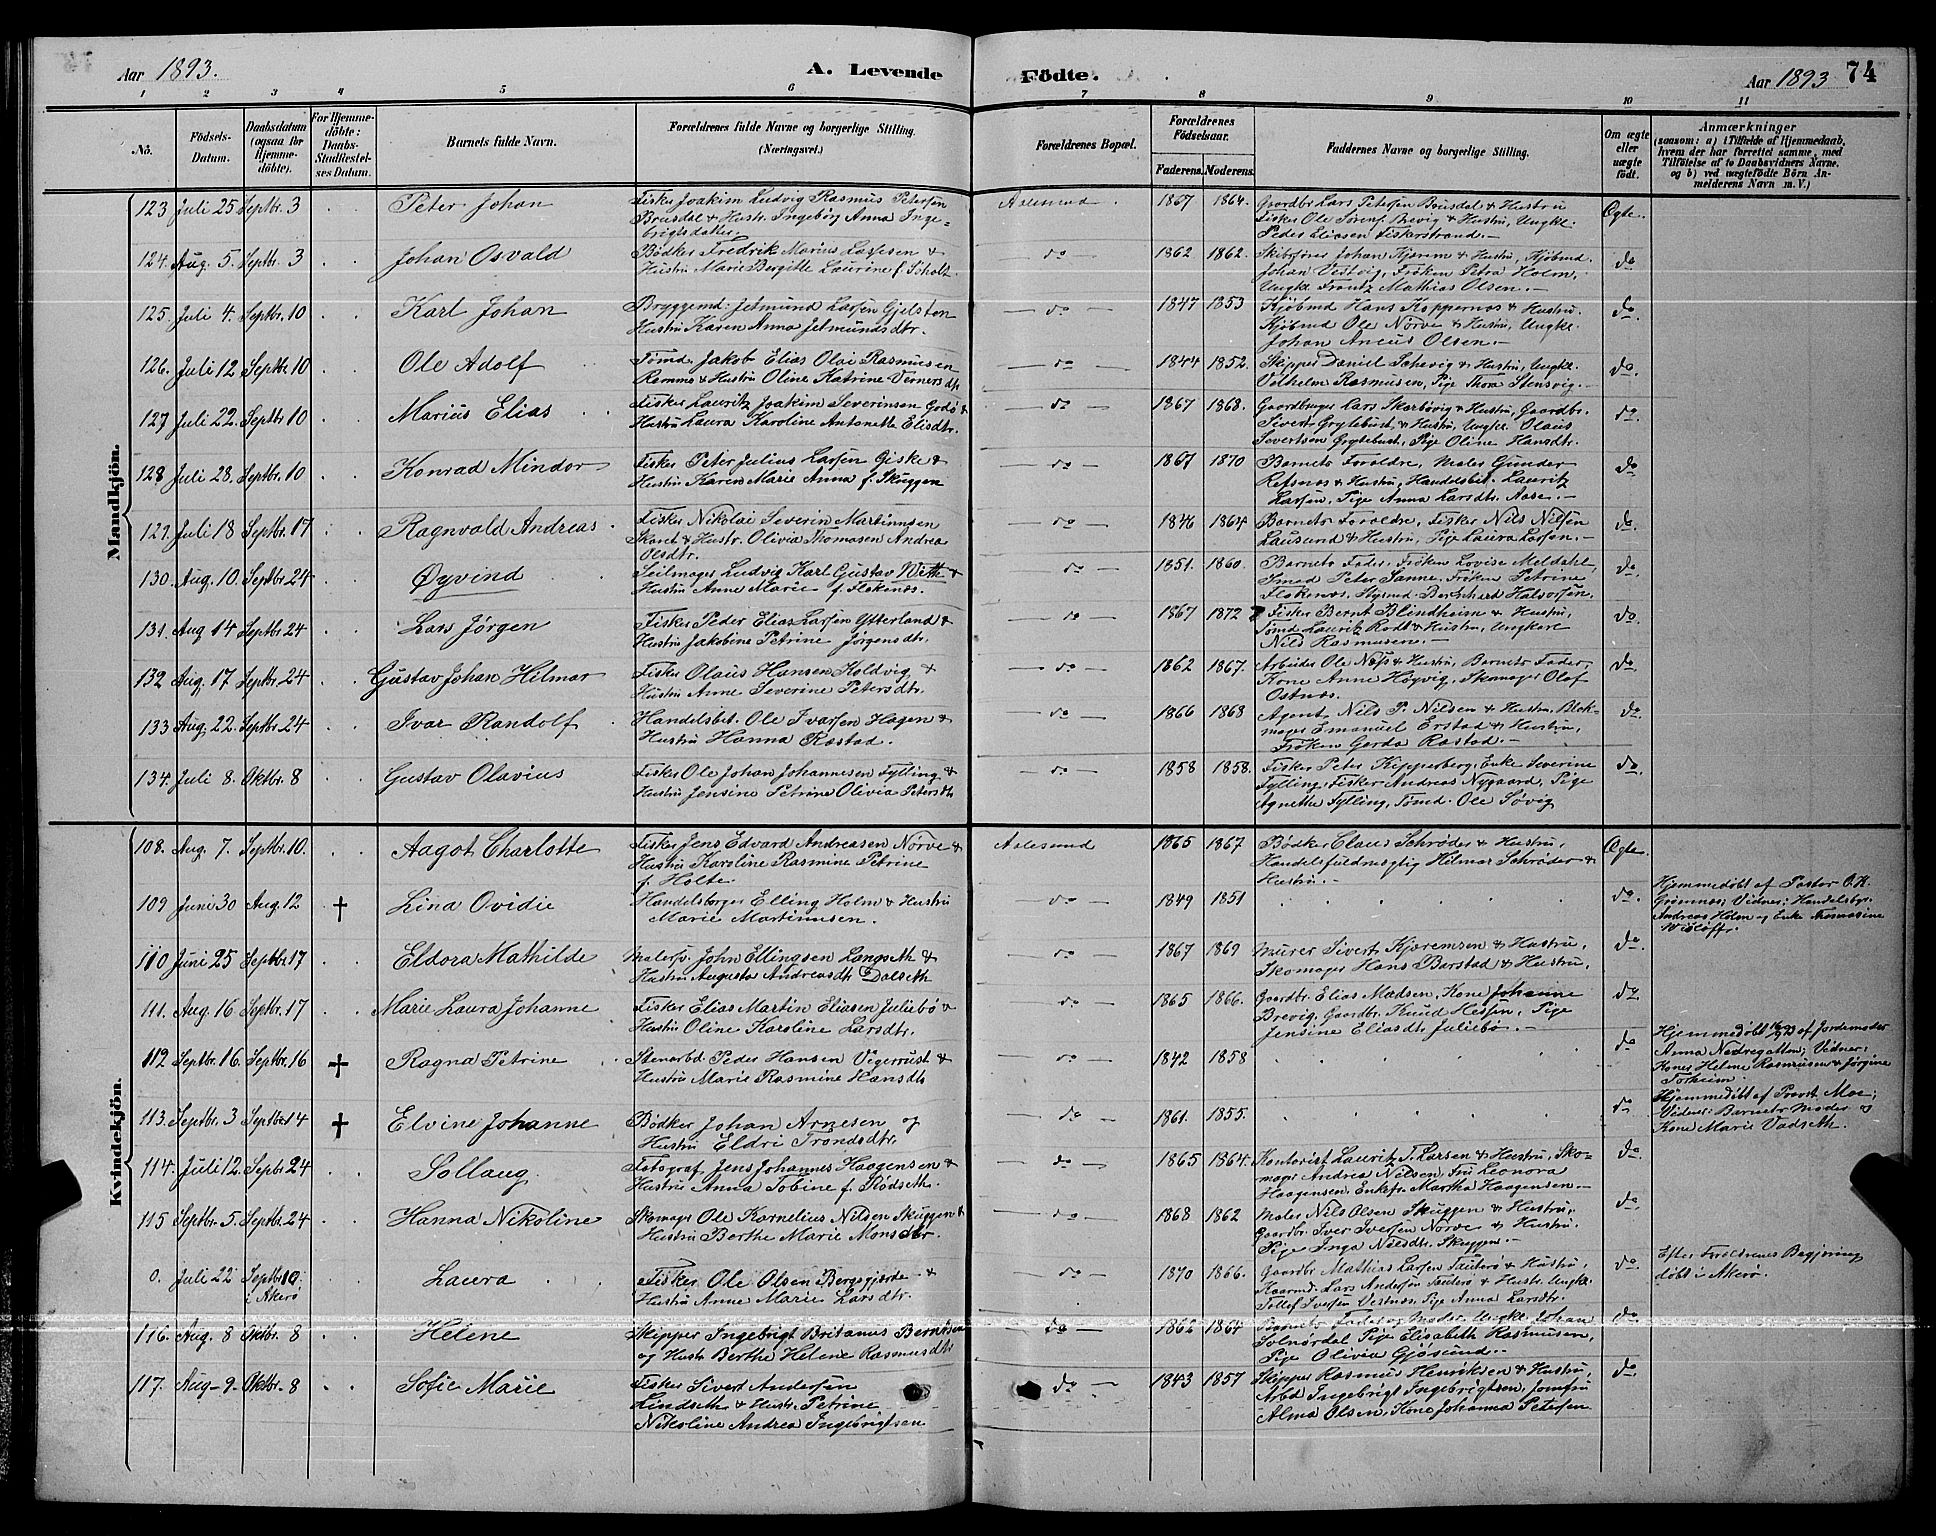 Aar 1893. A. Levende Födte. Aar 1893 74
1 2 3 4 5 6 7 8 9 10 11
No.
Födsels-
Datum.
Daabsdatum
(ogsaa for
Hjemme-
döbte).
For Hjemme-
döbte:
Daabs-
Stadfæstel-
ses Datum.
Barnets fulde Navn.
Forældrenes fulde Navne og borgerlige Stilling.
(Næringsvei.)
Forældrenes Bopæl.
Forældrenes
Födselsaar.
Faderens. Moderens.
Faddernes Navne og borgerlige Stilling.
Om ægte
eller
uægte
födt.
Anmærkninger
(saasom: a) i Tilfælde af Hjemmedaab,
hvem der har forrettet samme, med
Tilföielse af to Daabsvidners Navne.
og b) ved uægtefödte Börn An-
melderens Navn m. V.)
Mandkjön.
123 Juli 25 Septbr. 3 Peter Johan Fisker Joakim Ludvig Rasmus Petersen Aalesund. 1867 1864. Gaardbr Lars Petersen Brusdal & Hustru Ægte.
Brusdal & Hustr. Ingebörg Anna Inge- Fisker Ole Sörens. Brevig & Hustru, Ungkl.
brigtsdatter. Peder Eliasen Fiskerstrand.
124. Aug. 5. Septbr. 3 Johan Osvald Bödker Fredrik Marius Larssen & do 1862 1862. Skibsförer Johan Kjærem & Hustru, Kjöbmd. do
Hustru Marie Bergitte Laurine f. Scholtz. Johan Vestvig, Fröken Petra Holm,
Ungkl. Frantz Mathias Olsen.
125. Juli 4. Septbr. 10 Karl Johan Bryggemd. Jetmund Larsen Gjelsten do 1847 1853 Kjöbmd Hans Koppernæs & Hustru, do.
Hustru Karen Anna Jetmundsdtr. Kjöbmd Ole Nörve & Hustru, Ungkl.
Johan Aneus Olsen.
126. Juli 12 Septbr 10 Ole Adolf Tömd. Jakob Elias Olai Rasmusen do 1844 1852. Skipper Daniel Schevig & Hustru, Ungkl. do.
Remmø & Hustru Oline Katrine Vernersdtr Vilhelm Rasmusen, Pige Thora Stensvig.
127 Juli 22. Septbr 10 Marius Elias Fisker Lauritz Joakim Severinsen Godø & do 1867 1868. Gaardbruger Lars Skarbövig & Hustru, Gaardbr. do.
Hustru Laura Karoline Antonette Elisdtr. Sivert Grytebust & Hustru, Ungkl. Olaus
Severtsen Grytebust, Pige Oline Hansdtr.
128 Juli 28. Septbr. 10 Konrad Mindor Fisker Peter Julius Larsen Giske & do 1867 1870 Barnets Foreldre, Maler Gunder do
Hustru Karen Marie Anna f. Skuggen Refsnes & Hustru, Handelsbet. Lauritz
Larsen, Pige Anna Larsdtr. Aase.
129. Juli 18 Septbr 17 Ragnvald Andreas. Fisker Nikolai Severin Martinusen do 1846 1864 Barnets Foreldre, Fisker Nils Nilsen do.
Skaret & Hustr. Olivia Thomasen Andrea Lausund & Hustru, Pige Laura Larsen.
Olsdtr.
130. Aug. 10. Septbr. 24 Øyvind Seilmager Ludvig Karl Gustav Witt & do 1851. 1860. Barnets Fader, Fröken Lovise Meldahl, do
Hustru Anne Marie f. Flokenes. Smed Peter Sanne, Fröken Petrine
Flokenes, Styrmd Bernhard Halvorsen.
131. Aug 14 Septbr. 24 Lars Jörgen Fisker Peder Elias Larsen Ytterland & do 1867 1872 Fisker Bernt Blindheim & Hustru, do.
Hustru Jakobine Petrine Jörgensdtr. Tömd Lauritz Rödt & Hustru, Ungkarl
Nils Rasmusen.
132 Aug. 17 Septbr. 24 Gustav Johan Hilmar Fisker Olaus Hansen Koldvig & do 1862 1867. Arbeider Ole Næss & Hustru, Barnets Fader, do
Hustru Anne Severine Petersdtr. Kone Anne Høgvig, Skomager Olaf
Ostnes.
133 Aug. 22. Septbr. 24 Ivar Randolf Handelsbet. Ole Ivarsen Hagen & do 1866 1868 Agent Nils P. Nilsen & Hustru, Blok- do.
Hustru Hanna Røstad. mager Emanuel Erstad & Hustru,
Fröken Gerda Røstad.
134. Juli 8. Oktbr. 8 Gustav Olavius Fisker Ole Johan Johannesen Fylling & do 1858 1858. Fisker Peter Kipperberg, Enke Severine do.
Hustru Jensine Petrine Olivia Petersdtr Fylling, Fisker Andreas Nygaard, Pige
Agnethe Fylling, Tömd. Ole Søvig
Kvindekjön.
108. Aug. 7. Septbr. 10. Aagot Charlotte Fisker Jens Edvard Andreasen Nörve & Aalesund 1865 1867 Bödker Claus Schrøder & Hustru, Ægte.
Hustru Karoline Rasmine Petrine Handelsfuldmægtig Hilmar Schrøder &
f. Holte. Hustru.
109 Juni 30 Aug. 12 † Lina Ovidie Handelsborger Elling Holm & Hustru do 1849 1851 do. Hjemmedöbt af Pastor O. K.
Marie Martinusen. Grömnes; Vidner: Handelsbgr.
Andreas Holm og Enke Thomasine
Wisløff.
110 Juni 25 Septbr 17 Eldora Mathilde Malers. John Ellingsen Langseth & do 1867 1869 Murer Sivert Kjæremsen & Hustru, do
Hustru Augusta Andreasdtr Dalseth Skomager Hans Barstad & Hustru.
111. Aug. 16 Septbr. 17 Marie Laura Johanne Fisker Elias Martin Eliasen Juliebö & do 1865 1866. Gaardbr. Elias Madsen, Kone Johanne do
Hustru Oline Karoline Larsdtr. Brevig, Gaardbr. Knud Hessen, Pige
Jensine Eliasdtr Juliebö.
112 Septbr. 16. Septbr. 16 † Ragna Petrine Stenarbd. Peder Hansen Vigerust & do 1842 1858 do Hjemmedöbt 16/9 93 af Jordemoder
Hustru Marie Rasmine Hansdtr Anna Nedregotten; Vidner:
Koner Helene Rasmusen & Jörgine
Torheim.
113. Septbr. 3 Septbr 14 † Elvine Johanne Bödker Johan Arnesen og do 1861. 1855. do Hjemmedöbt af Provst Moe;
Hustru Eldri Trondsdtr. Vidner: Barnets Moder &
Kone Marie Vadseth.
114. Juli 12. Septbr 24 Sollaug Fotograf Jens Johannes Haagensen & do 1865 1864. Kontorist Lauritz T. Larsen & Hustru, Sko- do.
Hustru Anna Tobine f. Rödseth. mager Andrea Nilsen, Fru Leonora
Haagensen, Enkefr. Martha Haagensen.
115 Septbr. 5. Septbr. 24 Hanna Nikoline Skomager Ole Kornelius Nilsen Skuggen & do 1868 1862 Maler Nils Olsen Skuggen & Hustru, do
Hustru Berthe Marie Monsdtr. Gaardbr. Iver Iversen Nörve & Hustru,
Pige Inga Nilsdtr. Skuggen.
0. Juli 22 Septbr 10 Laura Fisker Ole Olsen Bergsgjerde & do 1870 1866. Gaardbr Mathias Larsen Tauterö & Hustru, do Efter Foreldrenes Begjæring
i Akerø Hustru Anne Marie Larsdtr. Kaarmd. Lars Andersen Tauterö & Hustr. Ungkl. döbt i Akerø.
Tollef Iversen Vestnes, Pige Anna Larsdtr.
116. Aug. 8 Oktbr. 8 Helene Skipper Ingebrigt Britanus Berntsen do 1862 1864 Barnets Fader og Moder, Ungkl. Johan do
og Hustr Berthe Helene Rasmusdtr Solnördal, Pige Elisabeth Rasmusen,
Pige Olivia Gjøsund.
117. Aug. 9. Oktbr. 8 Sofie Marie Fisker Sivert Andersen do 1843 1857 Skipper Rasmus Henriksen & Hustru, do
Lindseth & Hustr. Petrine Arbd. Ingebrigt Ingebrigtsen, Jomfru
Nikoline Andrea Ingebrigtsen Alma Olsen, Kone Johanna Petersen